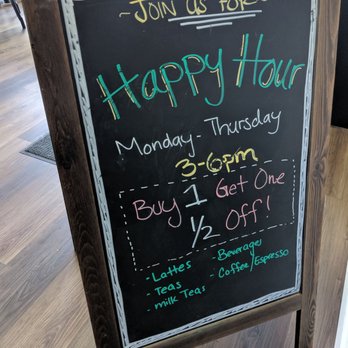 ~JOIN US FOR~
Happy Hour
Monday - Thursday
3-6pm
Buy 1 Get One
1/2 Off!
- Lattes
- Teas
- Milk Teas
- Beverages
- Coffee/Espresso